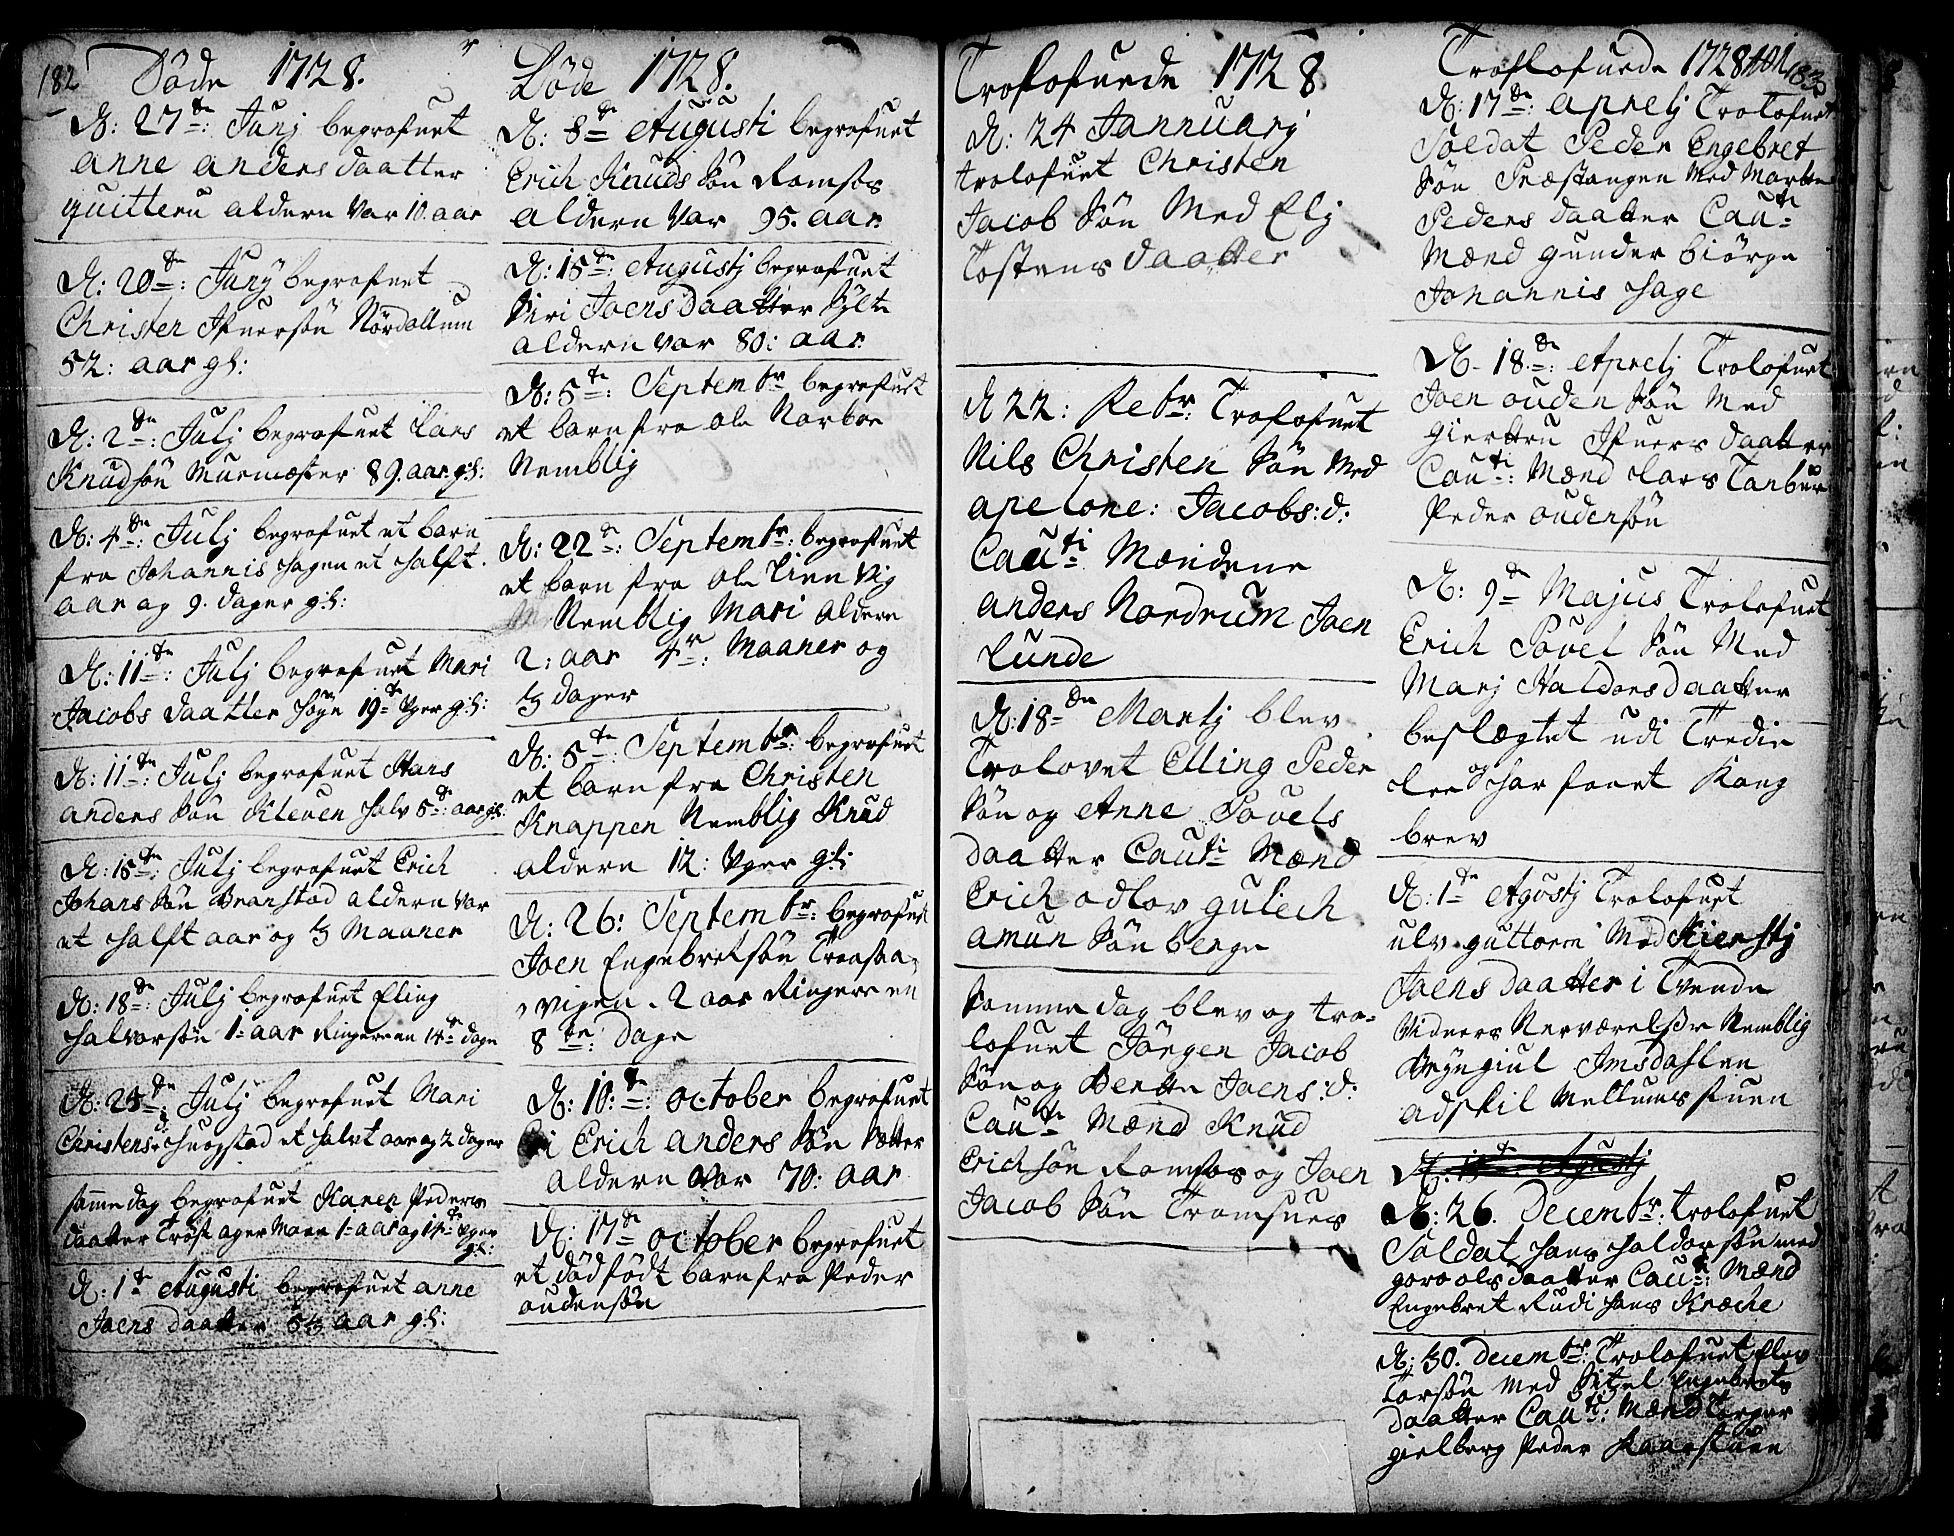 182
Döde 1728.
D: 27de: Junj begrafuet
anne anders daatter
quittern alderen var 10. aar
D: 20de: Junÿ begrafuet
Christen Ifuersön Nördallum
52: aar gl:
D: 2den: Julj begrafuet Lars
Knudsön Murmæster 89. aar gl:
D: 4de: Julj begrafuet et barn
fra Johannis Hagen et halft
aar og 9. dager gl:
D: 11te: Julj begrafuet Mari
Jacobs daatter Høye 19te Uger gl:
D: 11te: Julj begrafuet Hans
anders sön Kleuen halv 5te: aar gl:
D: 15te: Julj begrafuet Erich
Johans sön Branstad alderen var
et halft aar og 3 Maaner
D: 18de: Julj begrafuet Eling
Halvorsön 1: aar Ringere en 14de dage
D: 25de: Julj begrafuet Mari
Christens d: Huogstad et halvt aar og 2 dager
samme dag begrafuet Karen Peders
daatter Tröst ager Moen 1: aar og 14de Uger
gl:
D: 1te Augusti begrafuet anne
Joens daatter 53 aar gl:
Döde 1728.
D: 8de Augusti begrafuet
Erich Knuds sön Romsos
alderen var 95. aar
D: 15de: Augustj begrafuet
Siri Joens daatter Sÿlte
alderen var 80: aar
D: 5te: Septembr begrafuet
et barn fra Ole Narboe
Nemblig
D: 22de: Septembr: begrafuet
et barn fra Ole Lien Vig
Nemblig Mari alderen
2: aar 4re: Maaner og
3 dager
D: 5te: Septembr: begrafuet
et barn fra Christen
Knappen Nemblig Knud
alderen 12: Uger gl:
D: 26: Septembr: begrafuet
Joen Engebretsön Traasaa
vigen. 2 aar Ringere en
8te: dage
D: 10:de: October begrafuet
Erich anders sön Sætter
alderen var 70: aar
D: 17de October begrafuet
et död födt barn fra Peder
oudensön
Trolofuede 1728
D: 24 Jannuarÿ
trolofuet Christen
Jacob sön Med Elj
Tostens daatter
D 22: Febr: Trolofuet
Nils Christen sön Med
apelone: Jacobs: d:
Cauti Mændene
anders Nordrum Joen
Lunde
D: 18den Martj blev
Trolovet Elling Peder
sön og Anne Povels
daatter Cauti Mænd
Erich odlov gulech
amun sön berge
samme dag blev og tro-
lofuet Jörgen Jacob
sön og Berte Joens: d:
Cauti Mænd Knud
Erichsön Romsos og Joen
Jacob sön Tromsnes
Troflofuede 1728 183
D: 17de: Aprelj Trolofuet
Soldat Peder Engebret
sön Præstangen Med Marte
Peders daatter Cauti:
Mænd gunder biörge
Johannis Hage
D. 18de: Aprelj Trolofuet
Joen ouden sön Med
giertru Ifuers daatter
Cauti: Mænd Lars Tanbur
Peder oudensön
D: 9de Majus Trolofuet
Erich Povel sön Med
Marj Haldors daatter
beslægtet udi Tredie
Lee og har faaet Kong
brev
D: 1te Agostj Trolofuet
ulv guttorm Med Kierstj
Joens daatter i Tvende
Vidners Nerværelse Nemblig
Bryngiul Imsdahlen
adskil Mellumsstuen
D: 15de: Agustj
D: 26. Decembr: trolofuet
Soldat Hans Haldorsön med
goro ols daatter Cauti: Mænd
Engebret Rudi Hans Kræche
D: 30. Decembr: Trolofuet Elev
Torsön Med Sitel Engebrets
daatter Cauti: Mænd Torger
gielberg Peder Haarstuen